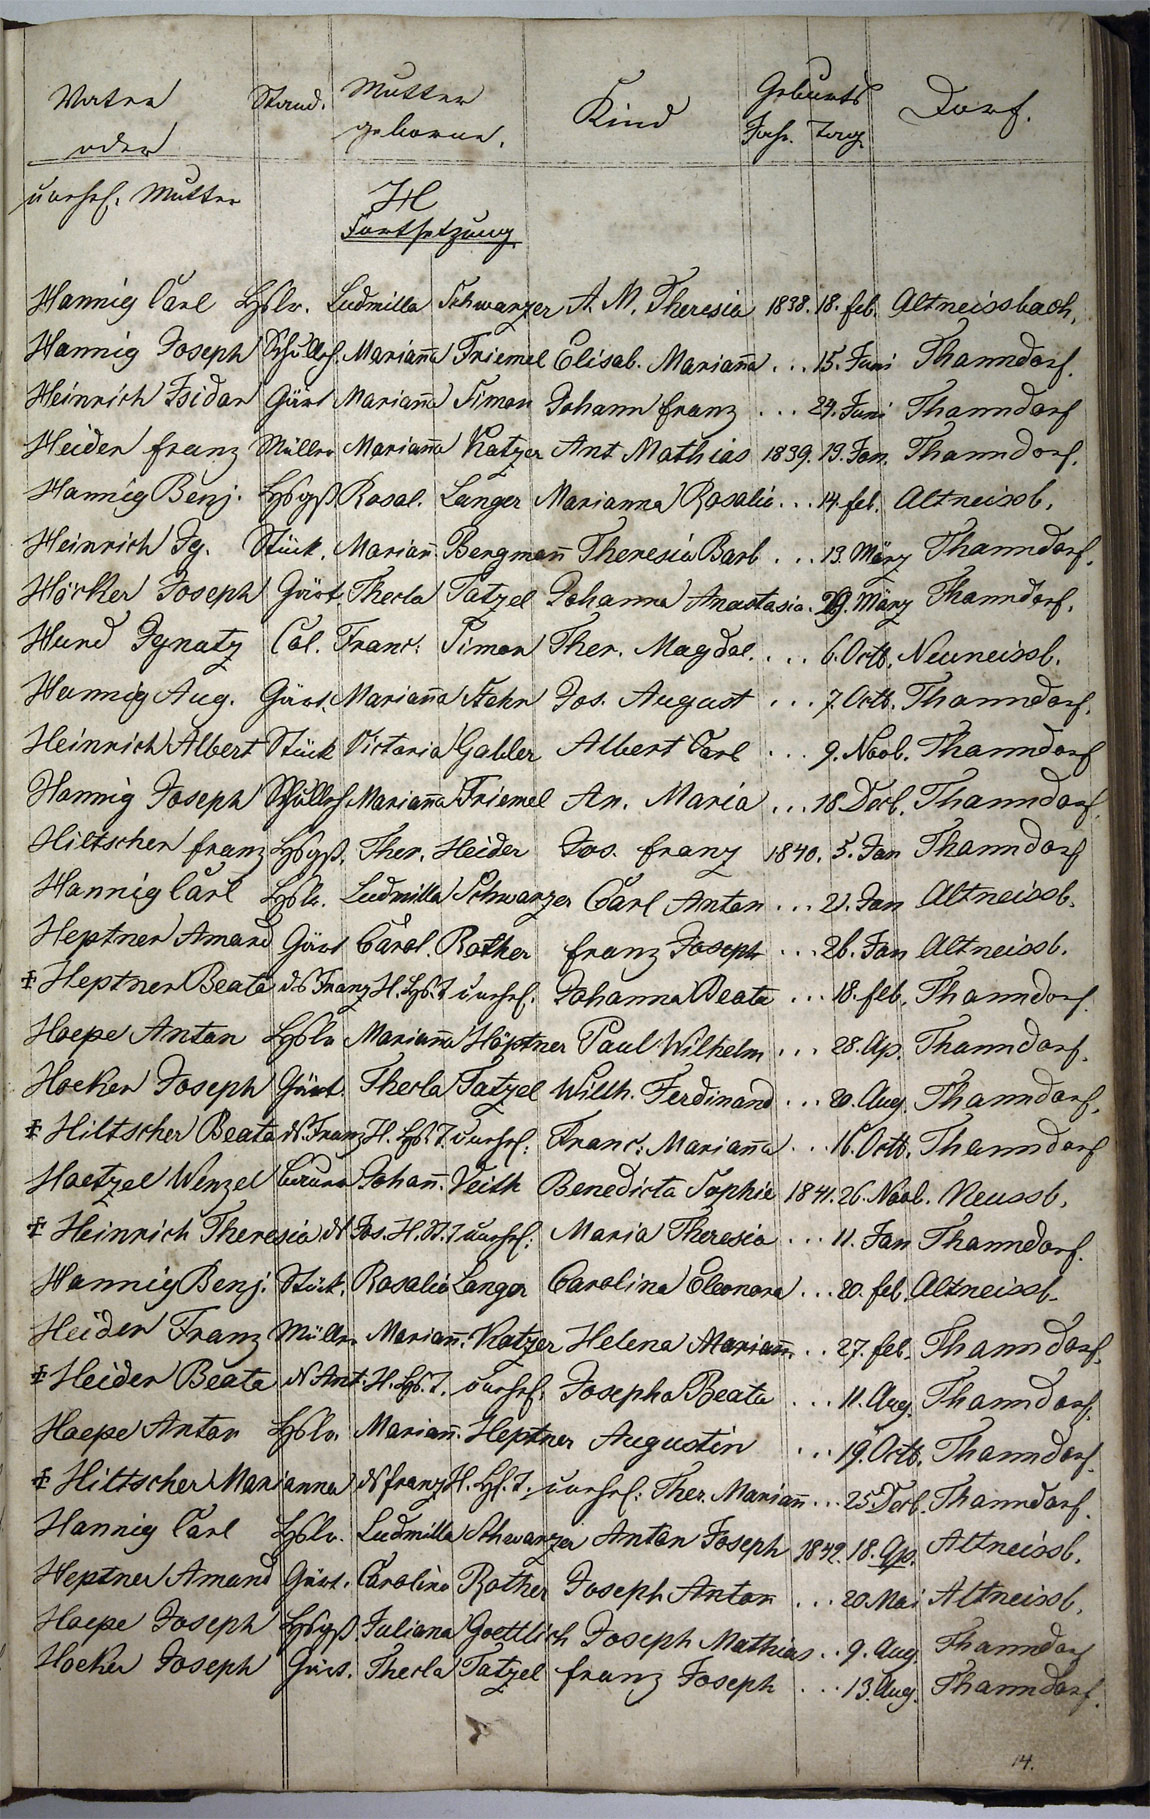 Vater Stand. Mutter Kind Geburts Dorf.
oder geborne. Jahr. Tag
unehl. Mutter
H
Fortsetzung
Hannig Carl Hslr. Ludmilla Schwarzer A. M. Theresia 1838. 18. feb. Altneissbach.
Hannig Joseph Schullh. Marianna Triemel Elisab. Marianna ... 15. Juni Thanndorf.
Heinrich Isidor Gärt Marianna Simon Johann franz ... 24. Juni Thanndorf
Heider franz Müller Marianna Katzer Ant Mathias 1839. 19. Jan. Thanndorf.
Hannig Benj. Hsgß Rosal. Langer Marianna Rosalia ... 14. feb. Altneissb.
Heinrich Ig. Stück. Mariann. Bergmann Theresia Barb ... 13. März Thanndorf.
Höcker Joseph Gärt. Thecla Tatzel Johanna Anastasia. 29. März Thanndorf.
Hund Ignatz Col. Franc: Simon Ther. Magdal. ... 6. Octb. Neuneissb.
Hannig Aug. Gärt. Marianna Hahn Jos. August ... 7. Octb. Thanndorf.
Heinrich Albert Stück Victoria Gabler Albert Carl ... 9. Novb. Thanndorf
Hannig Joseph Schullh. Marianna Triemel An. Maria ... 18 Decb. Thanndorf.
Hiltscher franz Hsgß. Ther. Heider Jos. franz 1840. 5. Jan Thanndorf
Hannig Carl Hslr. Ludmilla Schwarzer Carl Anton ... 21. Jan Altneissb.
Heptner Amand Gärt Carol. Rother franz Joseph ... 26. Jan Altneissb.
‡ Heptner Beata d.s Franz H. Hs. T unehl. Johanna Beata ... 18. feb. Thanndorf.
Hoepe Anton Hslr Marianna Höptner Paul Wilhelm ... 28. Ap. Thanndorf.
Hoeker Joseph Gärt. Thecla Tatzel Wilh. Ferdinand ... 20. Aug. Thanndorf.
‡ Hiltscher Beata d.s Franz H. Hs. T. unehl: Franc: Marianna ... 16. Octb. Thanndorf
Hoetzel Wenzel Bauer Johann. Veith Benedicta Sophie 1841. 26. Novb. Neussb.
‡ Heinrich Theresia d.s Jos. H. St. T unehl: Maria Theresia ... 11. Jan Thanndorf.
Hannig Benj. Stück. Rosalia Langer Carolina Eleonora ... 20. feb. Altneissb.
Heider Franz Müller Mariann. Katzer Helena Mariann. .. 27. feb. Thanndorf.
‡ Heider Beata d.s Ant. H. Hs. T. unehl. Josepha Beata ... 11. Aug. Thanndorf.
Hoepe Anton Hslr. Mariann. Heptner Augustin ... 19. Octb. Thanndorf.
‡ Hiltscher Marianna d.s franz H. Hs. T. unehl: Ther. Mariann ... 25 Decb. Thanndorf.
Hannig Carl Hslr. Ludmilla Schwarzer Anton Joseph 1842. 18. Ap. Altneissb.
Heptner Amand Gärt. Carolina Rother Joseph Anton ... 20. Mai Altneissb.
Hoepe Joseph Hsgß. Juliana Goettlich Joseph Mathias .. 9. Aug Thanndorf
Hoeker Joseph Gärt. Thecla Tatzel franz Joseph ... 13. Aug. Thanndorf.
14.